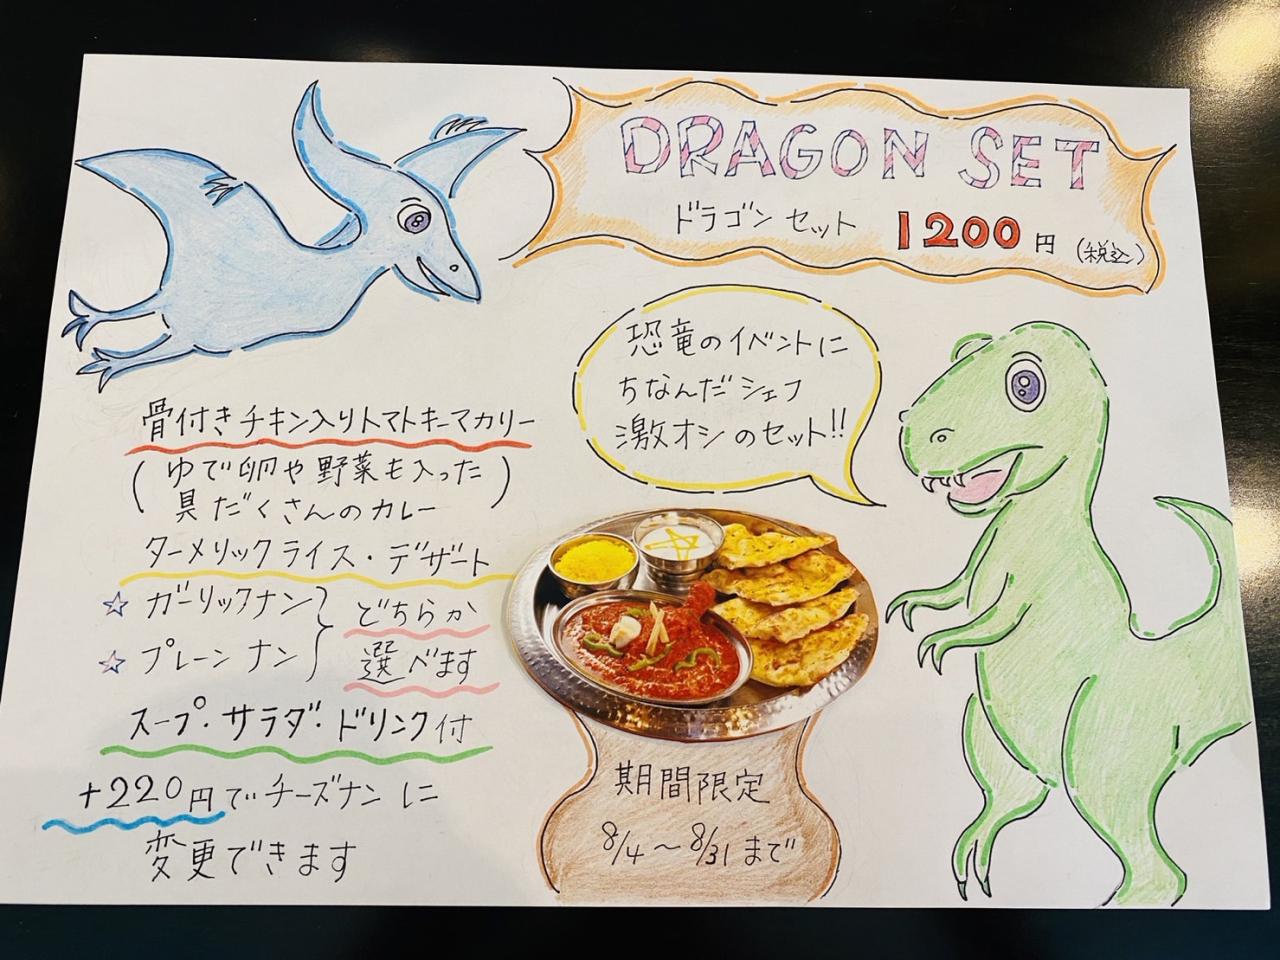 DRAGON SET
ドラゴンセット 1200円 (税込)
恐竜のイベントに
ちなんだシェフ
激オシのセット!!
骨付きチキン入りトマトキーマカリー
(ゆで卵や野菜も入った
具だくさんのカレー)
ターメリックライス・デザート
☆ ガーリックナン
☆ プレーンナン
どちらか
選べます
スープ・サラダ・ドリンク付
+220円でチーズナンに
変更できます
期間限定
8/4〜8/31まで